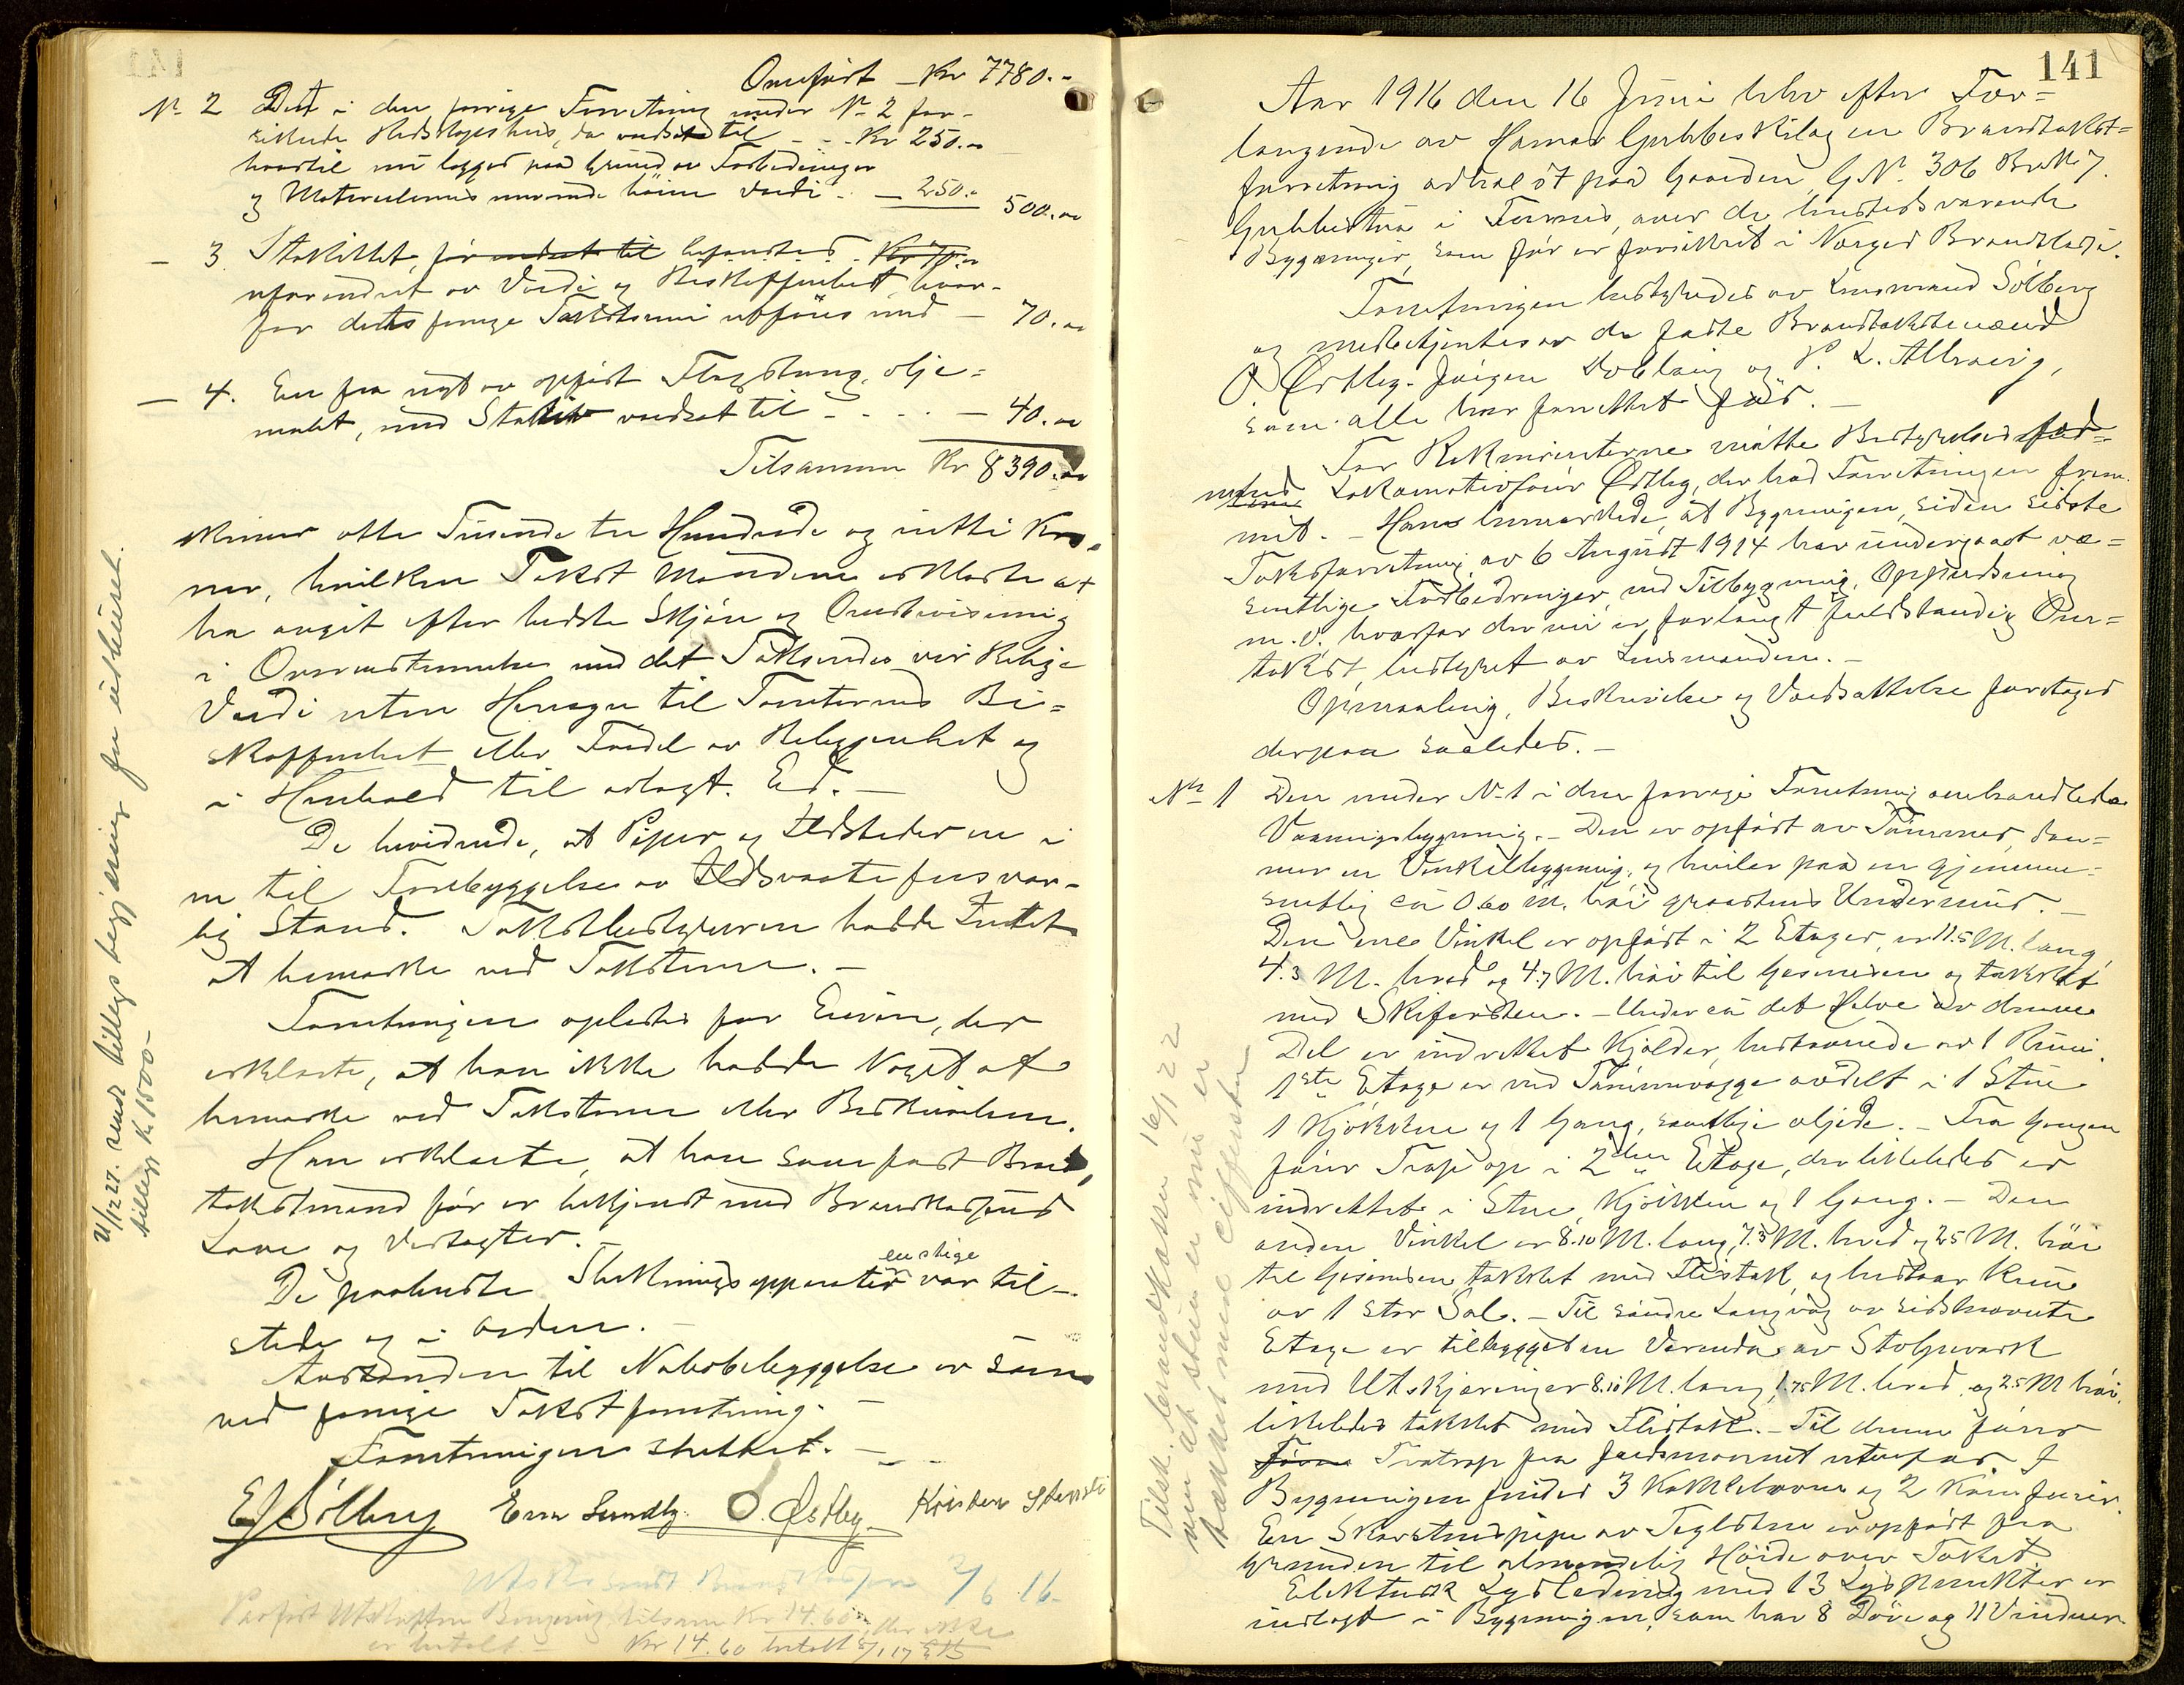 Overført – Kr 7780.-
No 2 Det i den forrige Forretning under No 2 for-
sikrede Redskapshus, da værdsat til - - Kr 250.00
hvortil nu lægges paa Grund av Forbedringer
og Materialernes nuværende høiere Værdi - – 250.00 500.00
– 3. Stakittet, før vædsat til befandtes Kr 70.00
uforandret av Værdi og Beskaffenhet, hvor-
for dets forrige Takstsum utføres med – 70.00
– 4. En fra nyt av opført Flagstang, olje-
malet, med Stakit værdsat til - - - - – 40.00
Tilsammen Kr 8390.00
skriver otte Tusende tre Hundrede og nitti Kro-
ner, hvilken Takst Mændene erklærte at
ha avgit efter bedste Skjøn og Overbevisning
i Overensstemmelse med det Takseredes virkelige
Værdi uten Hensyn til Tomternes Be-
skaffenhet eller Fordel av Beliggenhet og
i Henhold til avlagt Ed. –
De bevidnede, at Piper og Ildsteder er i
en til Forebyggelse av Ildsvaade forsvar-
lig Stand. Takstbestyreren hadde Intet
at bemærke ved Taksterne. –
Forretningen oplæstes for Eieren, der
erklærte, at han ikke hadde Noget at
bemærke ved Taksterne eller Beskrivelsen.
Han erklærte, at han som fast Brand-
takstmand før er bekjendt med Brandkassens
Love og Vedtægter. –
De paabudte Slukningsapparater var til-
enstige
stede og i Orden. –
Avstanden til Nabobebyggelse er som
ved forrige Takstforretning. –
Forretningen sluttet. –
E Sølberg Even Sundby. O. Østby Kristen
Utskr. sendt Brandkassen 2/6 16.
Paaført Utskriften Beregning tilsam Kr 14.60, der ikke
er betalt – Kr 14.60 betalt 5/1 17
21/12 27. sendt tillegs begjæring for uthuset.
tillegg K. 1500 –
141
Aar 1916 den 16 Juni blev efter For-
langende av Hamar Gubbeskilag en Brandtakst-
forretning avholdt paa Gaarden, GNo. 306 BrNo 7.
Gubbestua i Furnes, over de hersteds værende
Bygninger, som før er forsikret i Norges Brandkasse.
Forretningen bestyredes av Lensmand Sølberg
og medbetjentes av de faste Brandtakstmænd
O. Østby. Jørgen Doblaug og P. L. Alhaug,
som alle har forrettet før. –
For Rekvirenterne møtte Bestyrelsesfor-
mand Lokomotivfører Østby, der bad Forretningen frem-
met. – Han bemærkede, at Bygningen, siden sidste
Takstforretning av 6 August 1914 har undergaat væ-
sentlige Forbedringer ved Tilbygning, Oppudsning
m. v. hvorfor der nu er forlangt fuldstændig Om-
takst, bestyret av Lensmanden. –
Opmaaling, Beskrivelse og Værdsættelse foretages
derpaa saaledes. –
No 1 Den under No 1 i den forrige Forretning omhandlede
Vaaningsbygning. – Den er opført av Tømmer, dan-
ner en Vinkelbygning, og hviler paa en gjennem-
snitlig ca 0.60 M. høi graastens Undermur. –
Den ene Vinkel er opført i 2 Etager, er 11.5 M. lang,
4.3 M. bred og 4.7 M. høi til Gesimsen og takket
med Skifersten. – Under ca det Halve av denne
Del er indrettet Kjælder, bestaaende av 1 Rum.
1ste Etage er ved Tømmervægge avdelt i 1 Stue
1 Kjøkken og 1 Gang, samtlige oljede. – Fra Gangen
fører Trap op i 2den Etage, der likeledes er
indrettet i Stue Kjøkken og 1 Gang. – Den
anden Vinkel er 8.10 M. lang, 7.3 M. bred og 2.5 M. høi
til Gesimsen, takket med Flistak, og bestaar kun
av 1 stor Sal. – Til søndre Langvæg av sidstnævnte
Etage er tilbygget en Veranda av Stolpeværk
med Utskjæringer 8.10 M. lang, 1.75 M. bred og 2.5 M høi,
likeledes takket med Flistak. – Til denne fører
Trætrap fra Jordsmonnet utenfor I
Bygningen findes 3 Kakkelovne og 2 Komfurer.
En Skorstenspipe av Teglsten er opført fra
Grunden til almindelig Høide over Taket.
Elektrisk Lysledning med 13 Lyspunkter er
indlagt i Bygningen, som har 8 Døre og 11 Vinduer
Tilsk. brandkassen 16/12 22
om at stuen er nu er
tækket med eiffersten